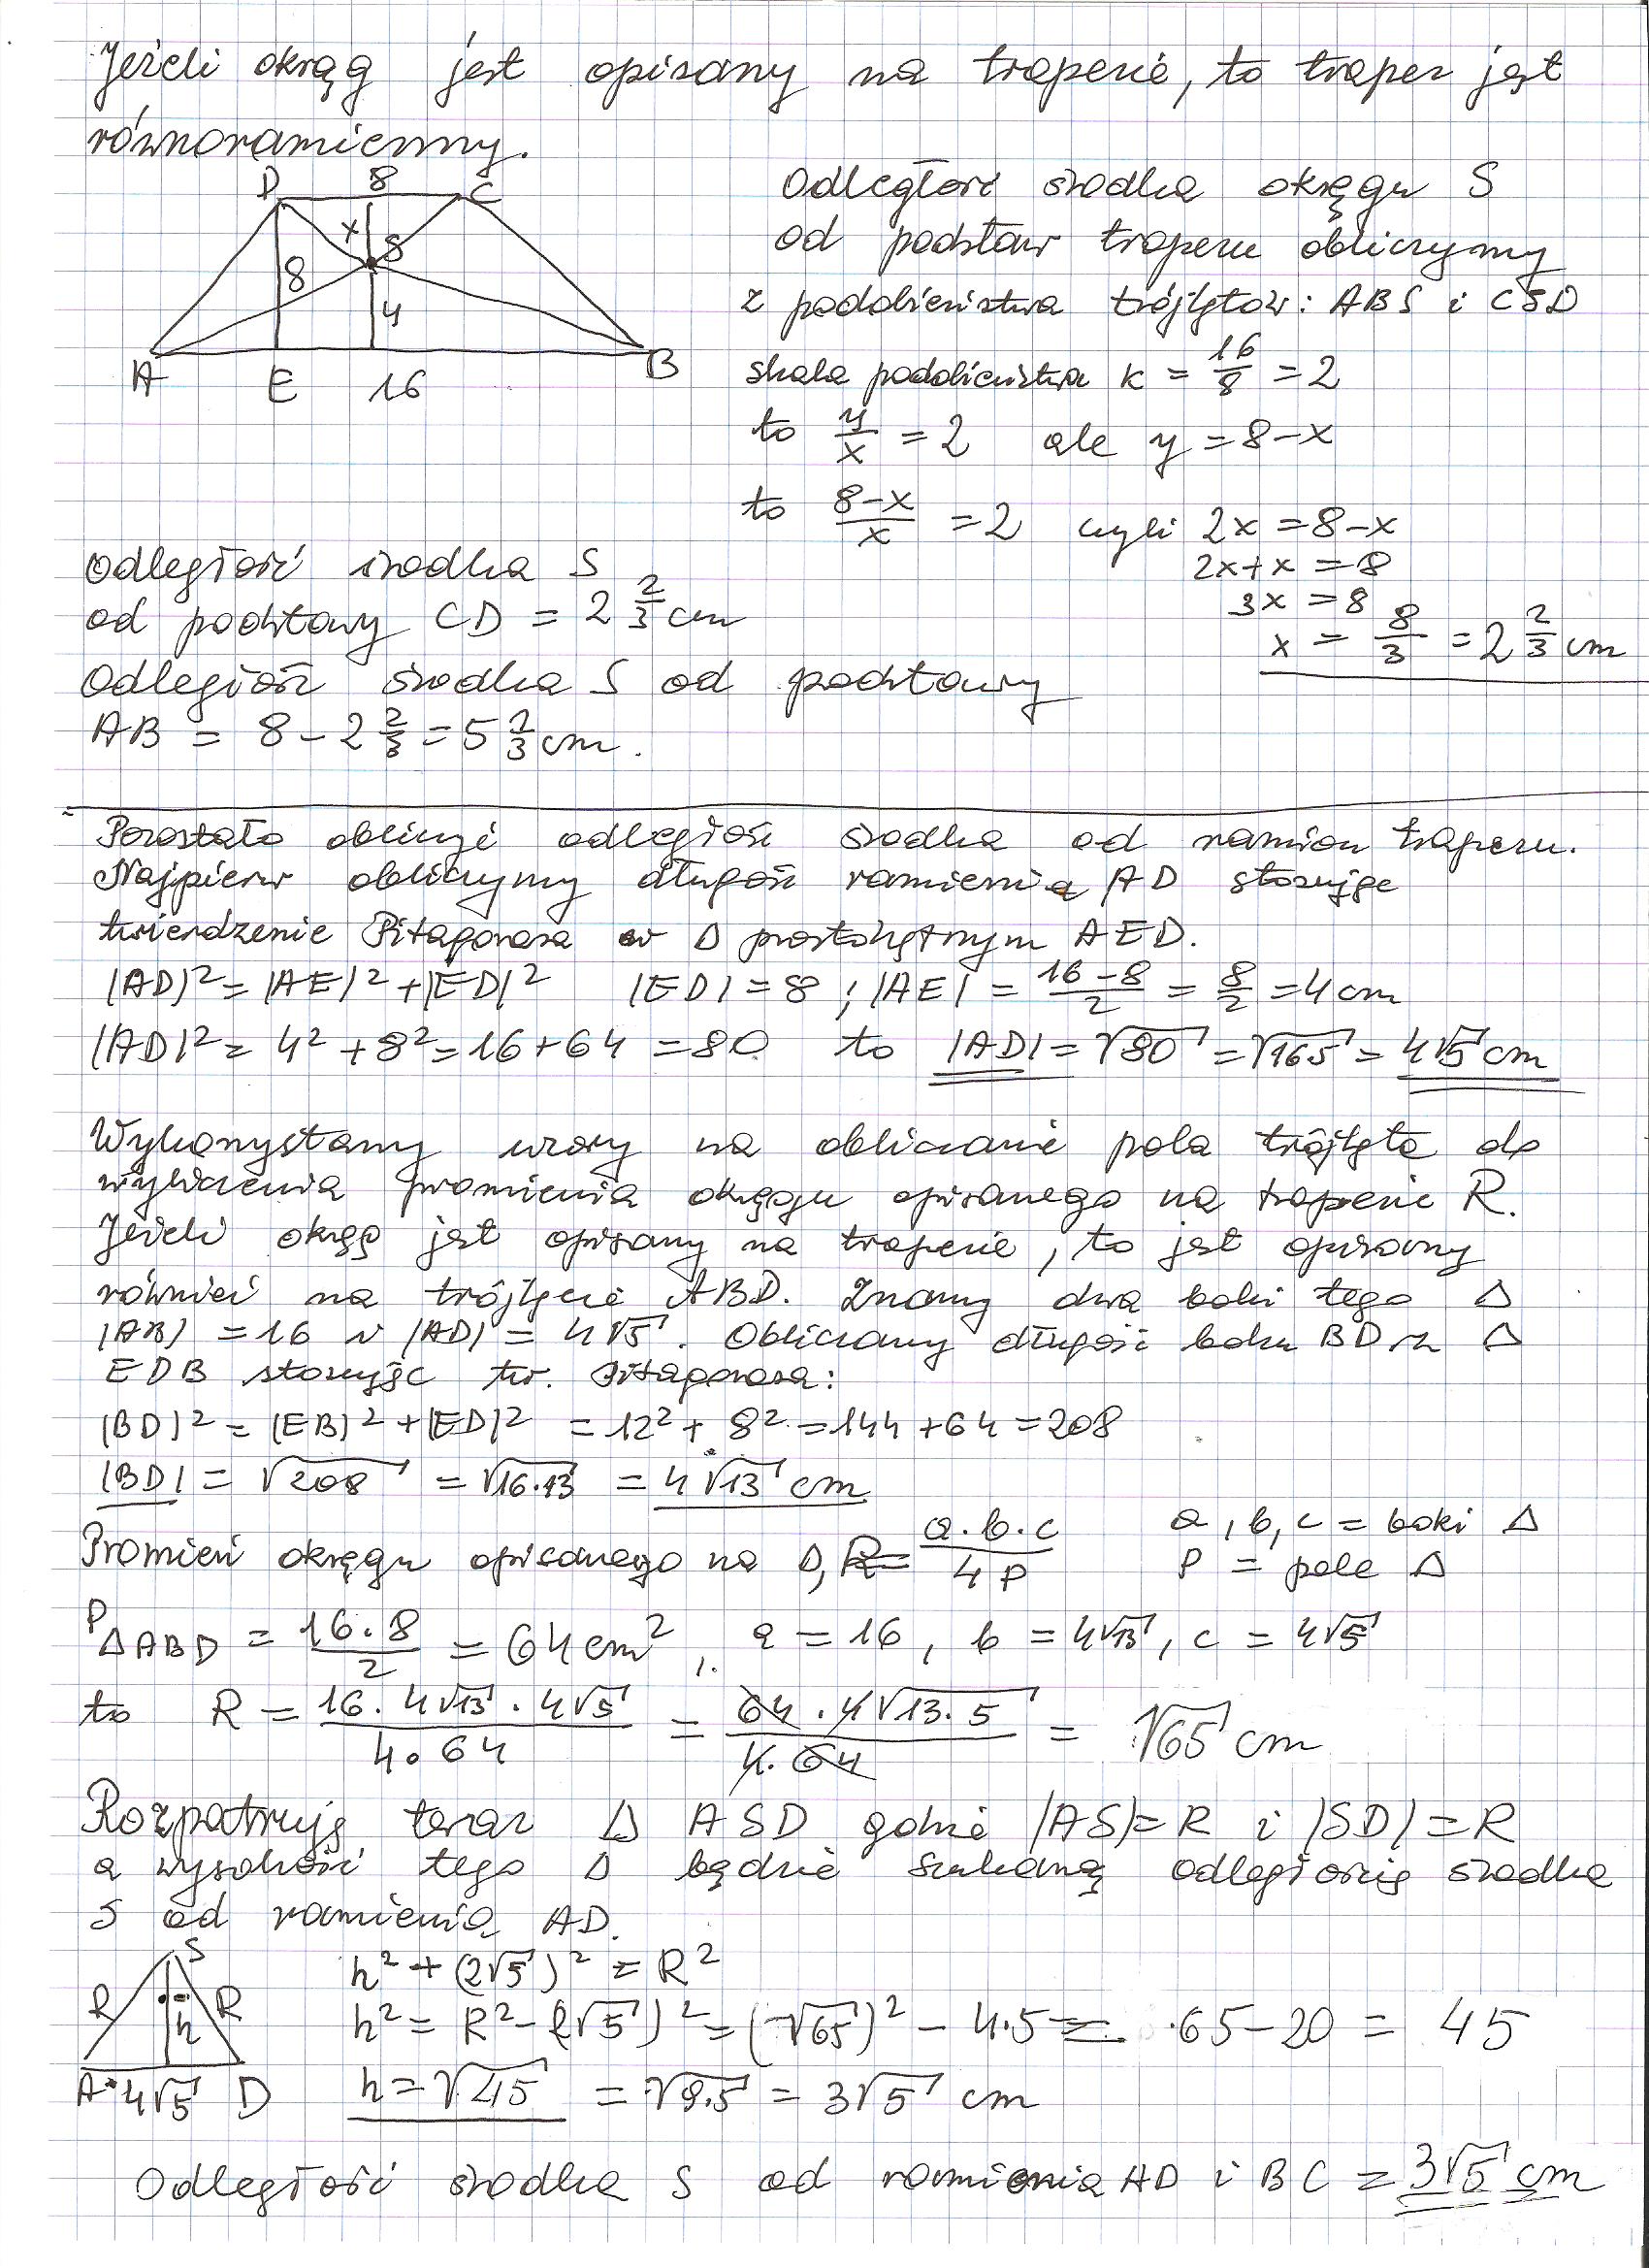 Jeżeli okrąg jest opisany na trapezie, to trapez jest
równoramienny.
D 8 C
x S
8
y
A E 16 B
Odległość środka okręgu S
od podstaw trapezu obliczymy
z podobieństwa trójkątów: ABS i CSD
skala podobieństwa k = 16/8 = 2
to y/x = 2 ale y = 8-x
to (8-x)/x = 2 czyli 2x = 8-x
2x+x = 8
3x = 8
x = 8/3 = 2 2/3 cm
Odległość środka S
od podstawy CD = 2 2/3 cm
Odległość środka S od podstawy
AB = 8 - 2 2/3 = 5 1/3 cm.
Pozostało obliczyć odległość środka od ramion trapezu.
Najpierw obliczymy długość ramienia AD stosując
twierdzenie Pitagorasa w Δ prostokątnym AED.
|AD|² = |AE|² + |ED|² |ED| = 8 ; |AE| = (16-8)/2 = 8/2 = 4 cm
|AD|² = 4² + 8² = 16+64 = 80 to |AD| = √80 = √16·5 = 4√5 cm
Wykorzystamy wzory na obliczanie pola trójkąta do
wyliczenia promienia okręgu opisanego na trapezie R.
Jeżeli okrąg jest opisany na trapezie, to jest opisany
również na trójkącie ABD. Znamy dwa boki tego Δ
|AB| = 16 i |AD| = 4√5. Obliczamy długość boku BD z Δ
EDB stosując tw. Pitagorasa:
|BD|² = |EB|² + |ED|² = 12² + 8² = 144 + 64 = 208
|BD| = √208 = √16·13 = 4√13 cm
Promień okręgu opisanego na Δ, R = a·b·c/4P a, b, c = boki Δ
P = pole Δ
PΔABD = 16·8/2 = 64 cm², a = 16, b = 4√13, c = 4√5
to R = 16·4√13·4√5/4·64 = 64·4√13·5/4·64 = √65 cm
Rozpatruję teraz Δ ASD gdzie |AS| = R i |SD| = R
a wysokość tego Δ będzie szukaną odległością środka
S od ramienia AD.
S
R h R
A 4√5 D
h² + (2√5)² = R²
h² = R² - (2√5)² = (√65)² - 4·5 = 65-20 = 45
h = √45 = √9·5 = 3√5 cm
Odległość środka S od ramienia AD i BC = 3√5 cm